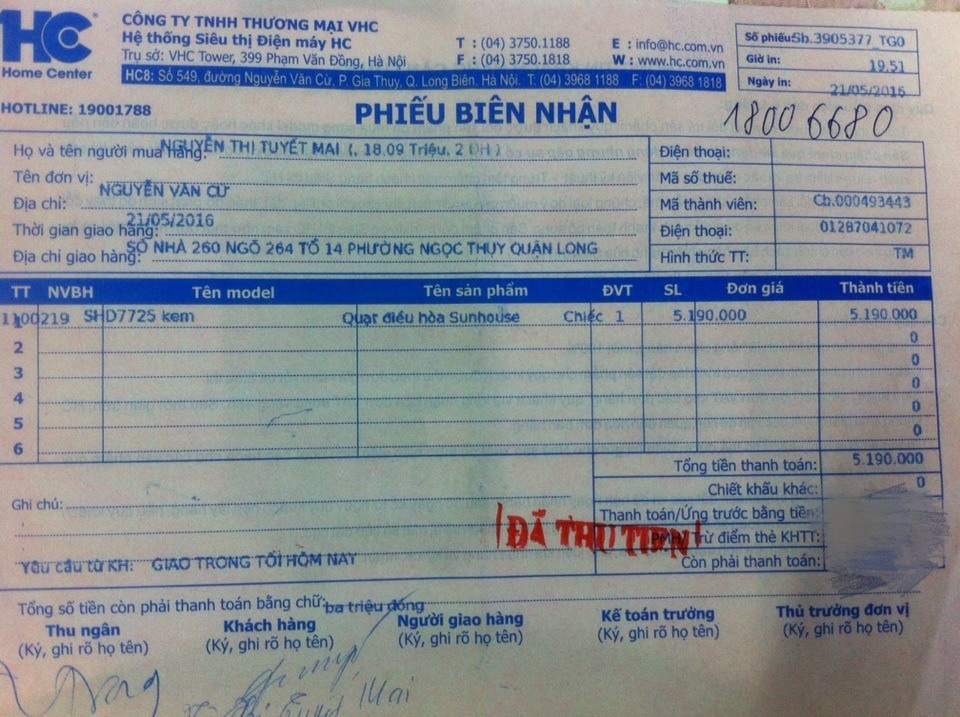 HC
Home Center
CÔNG TY TNHH THƯƠNG MẠI VHC
Hệ thống Siêu thị Điện máy HC
Trụ sở: VHC Tower, 399 Phạm Văn Đồng, Hà Nội
T : (04) 3750.1188 E : info@hc.com.vn
F : (04) 3750.1818 W : www.hc.com.vn
HC8: Số 549, đường Nguyễn Văn Cừ, P. Gia Thụy, Q. Long Biên. Hà Nội. T: (04) 3968 1188 F: (04) 3968 1818
Số phiếu: Sb.3905377_TG0
Giờ in: 19.51
Ngày in: 21/05/2016
HOTLINE: 19001788
PHIẾU BIÊN NHẬN
18006680
Họ và tên người mua hàng: NGUYỄN THỊ TUYẾT MAI (, 18.09 Triệu, 2 DH )
Tên đơn vị:
Địa chỉ: NGUYỄN VĂN CỪ
Thời gian giao hàng: 21/05/2016
Địa chỉ giao hàng: SỐ NHÀ 260 NGÕ 264 TỔ 14 PHƯỜNG NGỌC THỤY QUẬN LONG
Điện thoại:
Mã số thuế:
Mã thành viên: Cb.000493443
Điện thoại: 01287041072
Hình thức TT: TM
TT NVBH Tên model Tên sản phẩm ĐVT SL Đơn giá Thành tiền
1 100219 SHD7725 kem Quạt điều hòa Sunhouse Chiếc 1 5.190.000 5.190.000
2 0
3 0
4 0
5 0
6 0
Tổng tiền thanh toán: 5.190.000
Chiết khấu khác: 0
Ghi chú:
Thanh toán/Ứng trước bằng tiền:
Trừ điểm thẻ KHTT:
Còn phải thanh toán:
ĐÃ THU TIỀN
Yêu cầu từ KH: GIAO TRONG TỐI HÔM NAY
Tổng số tiền còn phải thanh toán bằng chữ: ba triệu đồng
Thu ngân Khách hàng Người giao hàng Kế toán trưởng Thủ trưởng đơn vị
(Ký, ghi rõ họ tên) (Ký, ghi rõ họ tên) (Ký, ghi rõ họ tên) (Ký, ghi rõ họ tên) (Ký, ghi rõ họ tên)
Mai